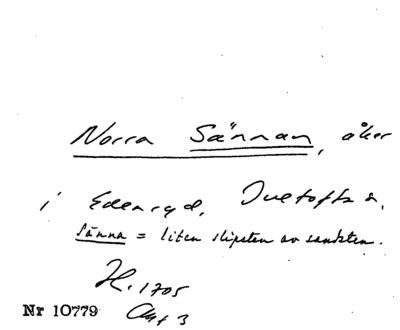 Norra Sännan, åker
i Edenryd, Ivetofta s.
Sänna = liten slipsten av sandsten.
H. 1705
Nr 10779